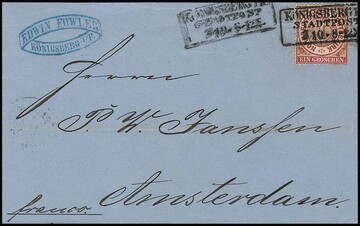 EDWIN FOWLER
KÖNIGSBERG I/P.
KÖNIGSBERG I. PR.
STADTPOST
KÖNIGSBERG
STADTPOST
EIN GROSCHEN
Herrn
P. W. Janssen
Amsterdam.
franco.